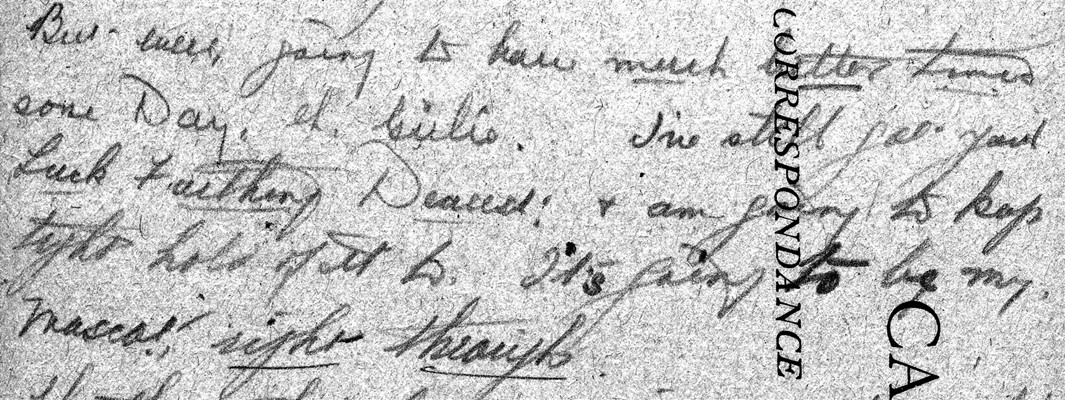 But we're going to have much better times
some Day, eh. Girlie. I've still got your
Luck Farthing Dearest; & am going to keep
tight hold of it to. It's going to be my.
Mascot, right through
CORRESPONDANCE
CA